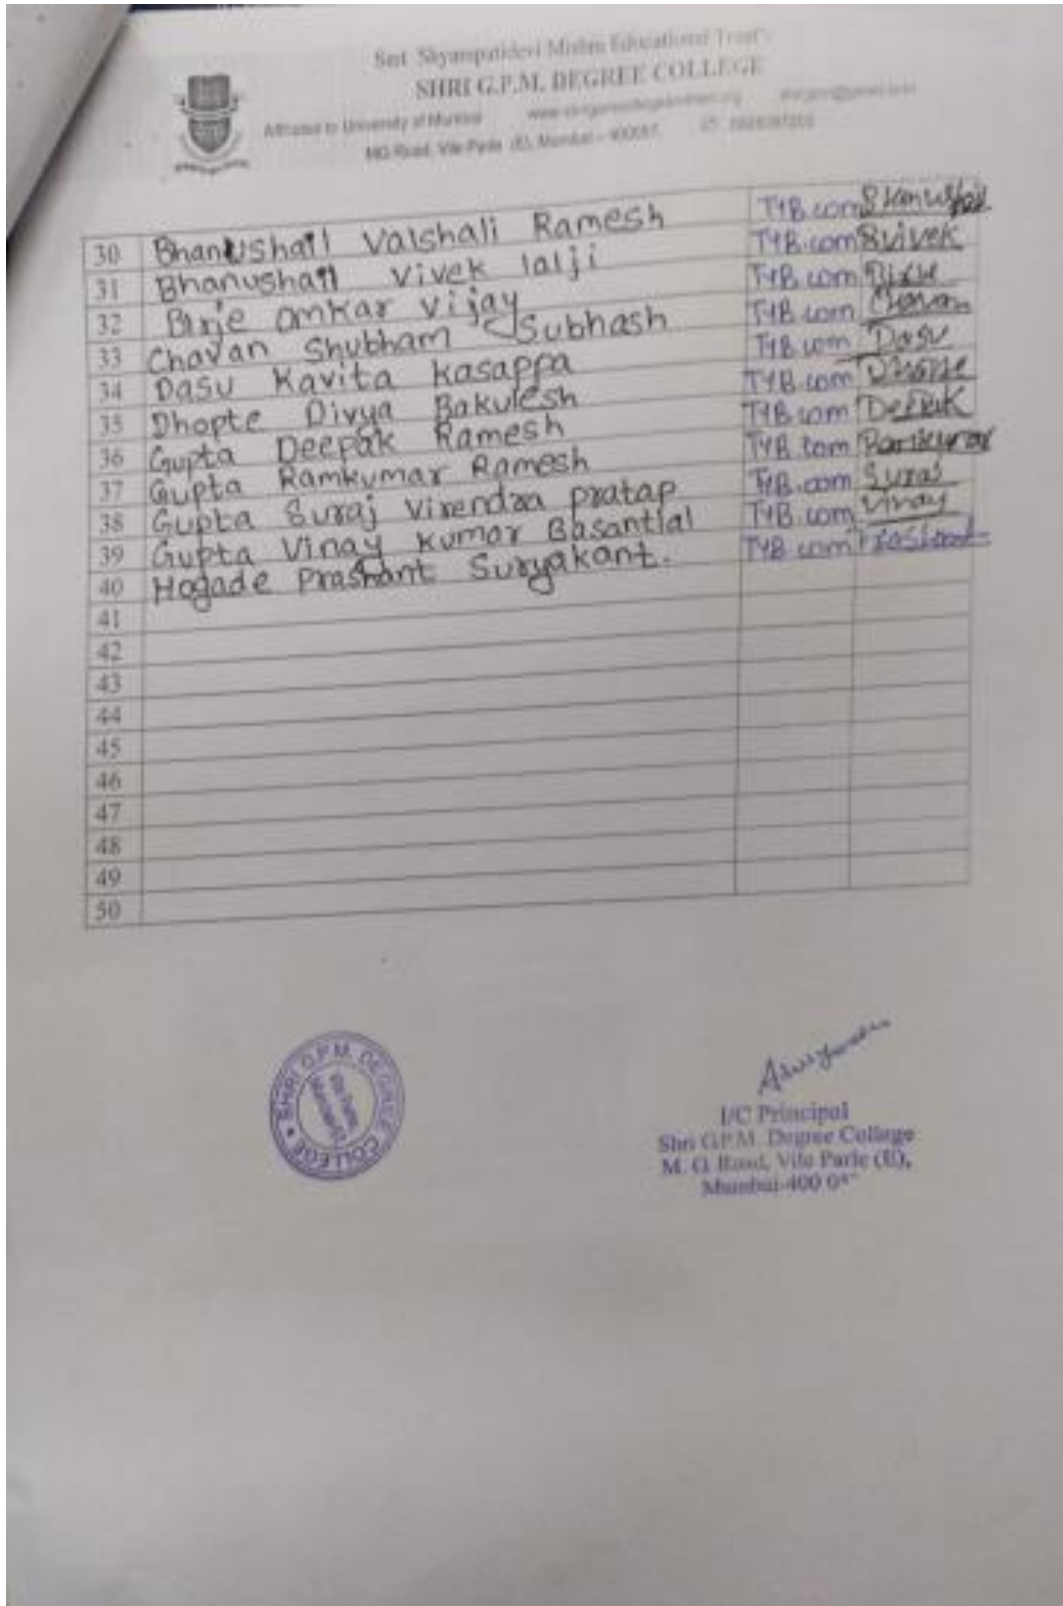 Smt. Shyampatidevi Mishra Educational Trust's
SHRI G.P.M. DEGREE COLLEGE
Affiliated to University of Mumbai
MG Road, Vile Parle (E), Mumbai – 400057.
30 Bhanushali Vaishali Ramesh TYB.com
31 Bhanushali Vivek lalji TYB.com Bvivek
32 Birje Omkar Vijay TYB.com Birje
33 Chavan Shubham Subhash TYB.com Chavan
34 Dasu Kavita Kasappa TYB.com Dasu
35 Dhopte Divya Bakulesh TYB.com
36 Gupta Deepak Ramesh TYB.com Deepak
37 Gupta Ramkumar Ramesh TYB.com Ramkumar
38 Gupta Suraj Virendra pratap TYB.com Suraj
39 Gupta Vinay Kumar Basantial TYB.com Vinay
40 Hogade Prashant Suryakant. TYB.com Prashant
41
42
43
44
45
46
47
48
49
50
SHRI G.P.M. DEGREE COLLEGE
Vile Parle
I/C Principal
Shri G.P.M. Degree College
M. G. Road, Vile Parle (E),
Mumbai-400